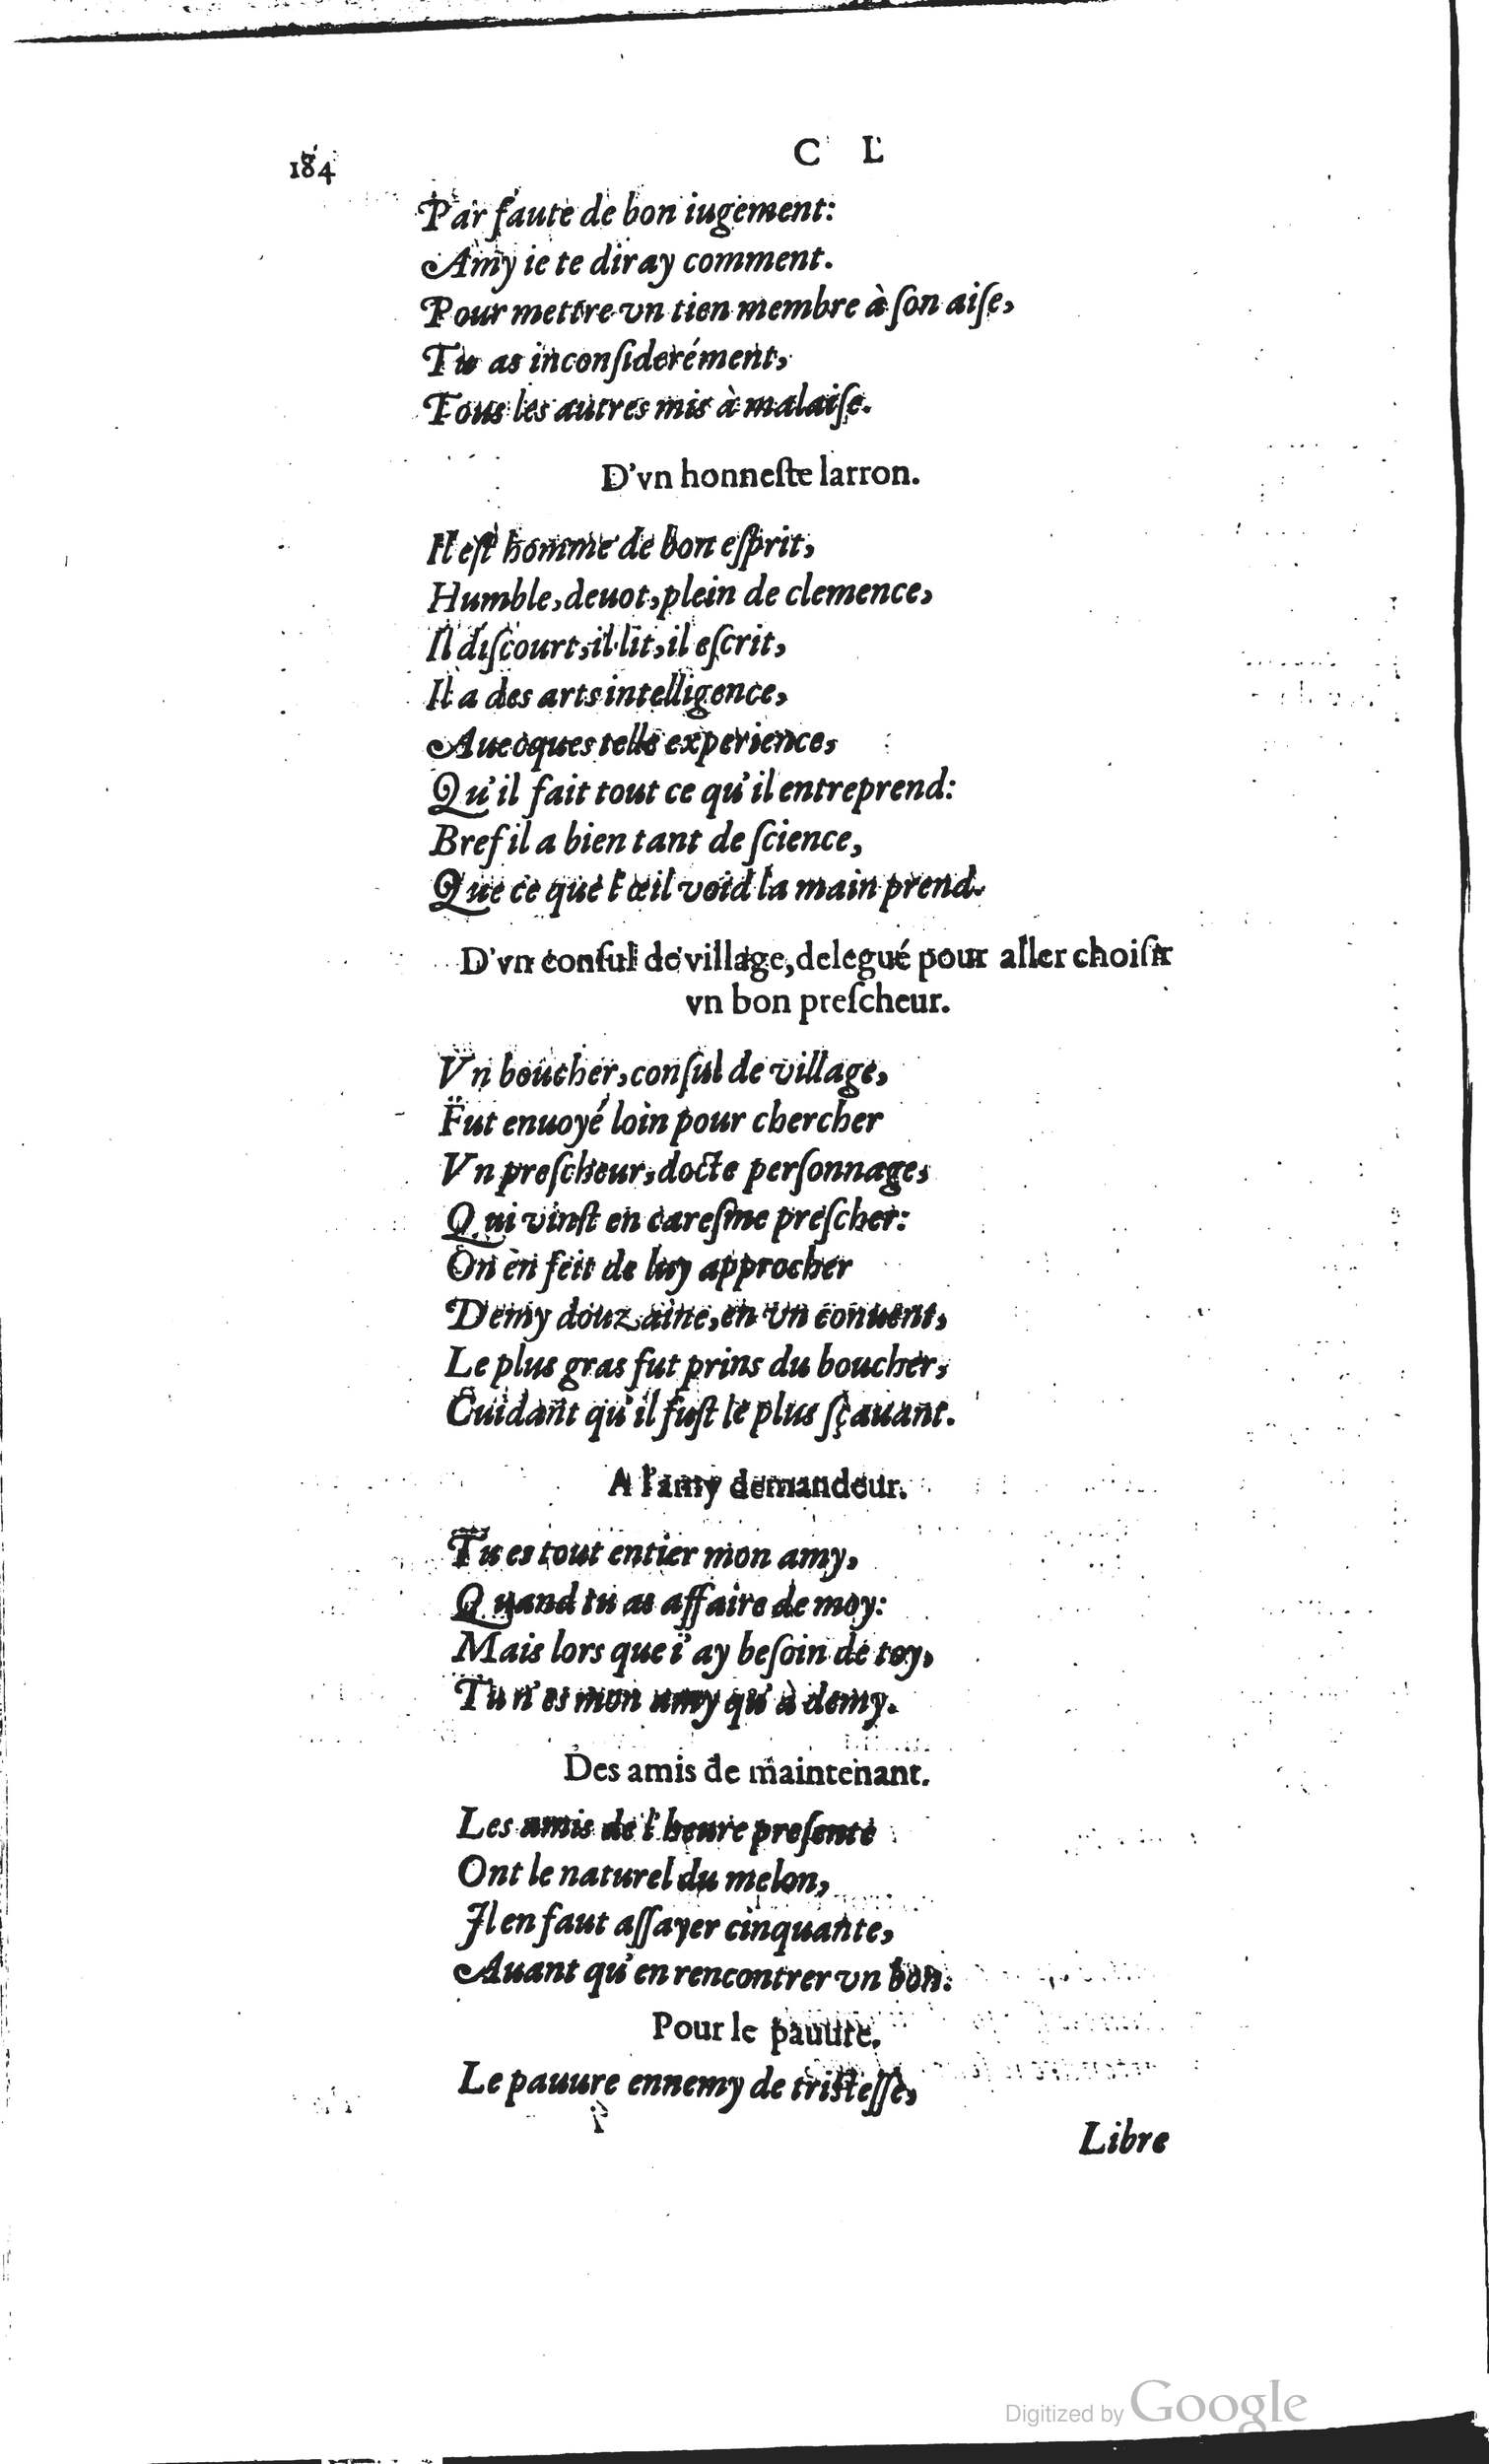 184
C L
Par faute de bon iugement:
Amy ie te diray comment.
Pour mettre vn tien membre à ſon aiſe,
Tu as inconſiderément,
Tous les autres mis à malaiſe.
D'vn honneſte larron.
Il eſt homme de bon eſprit,
Humble, deuot, plein de clemence,
Il diſcourt, il lit, il eſcrit,
Il a des arts intelligence,
Auecques telle experience,
Qu'il fait tout ce qu'il entreprend:
Bref il a bien tant de ſcience,
Que ce que l'œil void la main prend.
D'vn conſul de village, delegué pour aller choiſir
vn bon preſcheur.
Vn boucher, conſul de village,
Fut enuoyé loin pour chercher
Vn preſcheur, docte perſonnage,
Qui vinſt en careſme preſcher:
On en feit de luy approcher
Demy douzaine, en vn conuent,
Le plus gras fut prins du boucher,
Cuidant qu'il fuſt le plus ſçauant.
A l'amy demandeur.
Tu es tout entier mon amy,
Quand tu as affaire de moy:
Mais lors que i'ay beſoin de toy,
Tu n'es mon amy qu'à demy.
Des amis de maintenant.
Les amis de l'heure preſente
Ont le naturel du melon,
Il en faut aſſayer cinquante,
Auant qu'en rencontrer vn bon.
Pour le pauure.
Le pauure ennemy de triſteſſe,
Libre
Digitized by Google